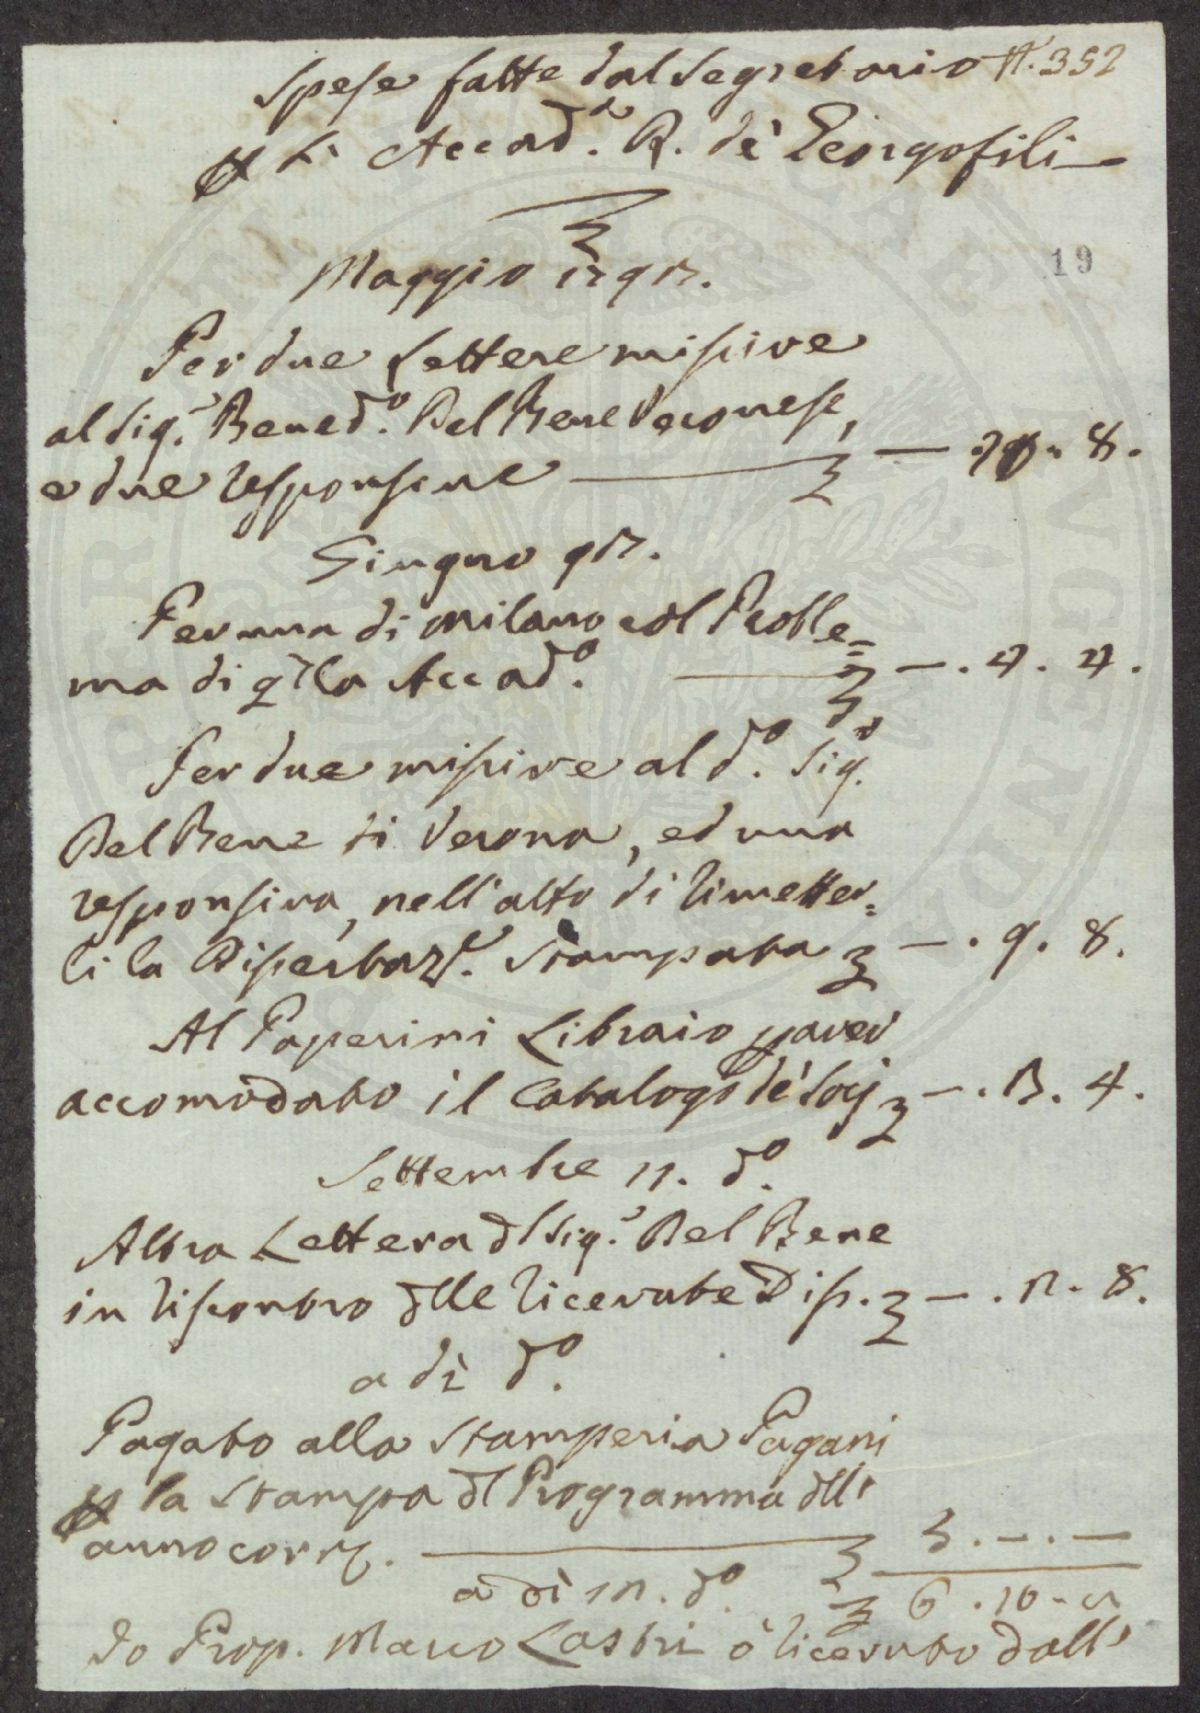 Spese fatte dal Segretario N. 352
p. L' Accad.a R. dè Georgofili
Maggio
19
Per due Lettere missive
al Sig.r Bened.o Del Bene Veronese,
e due responsive — . 8.
Giugno
Per una di Milano col Proble=
ma di q.lla Accad.a — . 4. 4.
Per due missive al d.o Sig.r
Del Bene di Verona, ed una
responsiva, nell'atto di rimetter=
li la Dissertaz.e Stampata — . 9. 8.
Al Paperini Libraio p aver
accomodato il Catalogo dè Socj — . 13. 4.
Settembre 11. d.o
Altra Lettera dl Sig.r Del Bene
in risposta dlle ricevute Diss. — . 8.
a dì d.o
Pagato alla Stamperia Pagani
p la Stampa dl Programma dll'
anno corr.e — —
a dì d.o 6 . 10 .
Io Prop. Marco Lastri ò ricevuto dall'